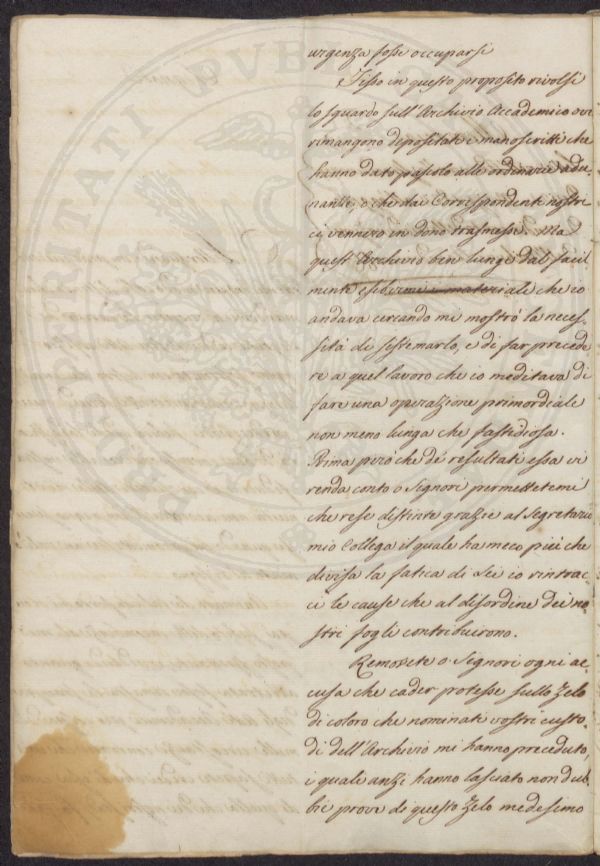 urgenza fosse occuparsi
Fisso in questo proposito rivolsi
lo sguardo sull'Archivio Accademico ove
rimangono depositati i manoscritti che
hanno dato pascolo alle ordinarie adu-
nanze, o che dai Corrispondenti nostri
ci vennero in dono trasmessi. Ma
quest'Archivio ben lungi dal facil
mente esibirmi i materiali che io
andava cercando mi mostrò la neces-
sità di sistemarlo, e di far precede
re a quel lavoro che io meditava di
fare una operazione primordiale
non meno lunga che fastidiosa.
Prima però che de' resultati essa vi
renda conto o Signori permettetemi
che rese distinte grazie al Segretario
mio Collega il quale ha meco più che
divisa la fatica di Lei io rintrac
ci le cause che al disordine dei no
stri fogli contribuirono.
Removete o Signori ogni ac
cusa che cader potesse sullo zelo
di coloro che nominati vostri custo-
di dell'Archivio mi hanno preceduto,
i quali anzi hanno lasciato non dub
bie prove di questo zelo medesimo
PROSPERITATI PUBL